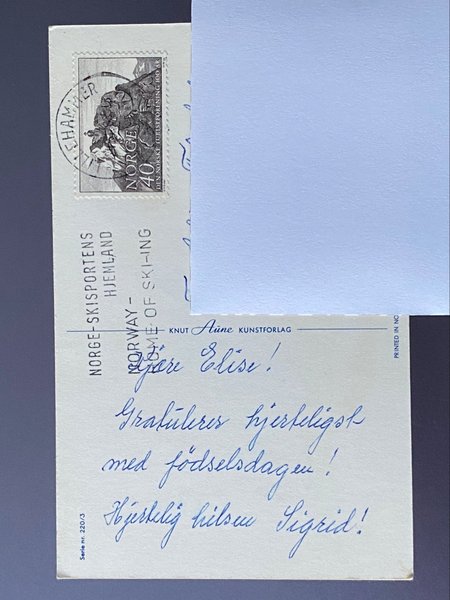 LILLEHAMMER
NORGE
40
DEN NORSKE TURISTFORENING 100 ÅR
NORGE-SKISPORTENS
HJEMLAND
NORWAY-
HOME OF SKI-ING
KNUT Aune KUNSTFORLAG
PRINTED IN NO
Kjære Elise!
Gratulerer hjerteligst
med födselsdagen!
Hjertelig hilsen Sigrid!
Serie nr. 220/3